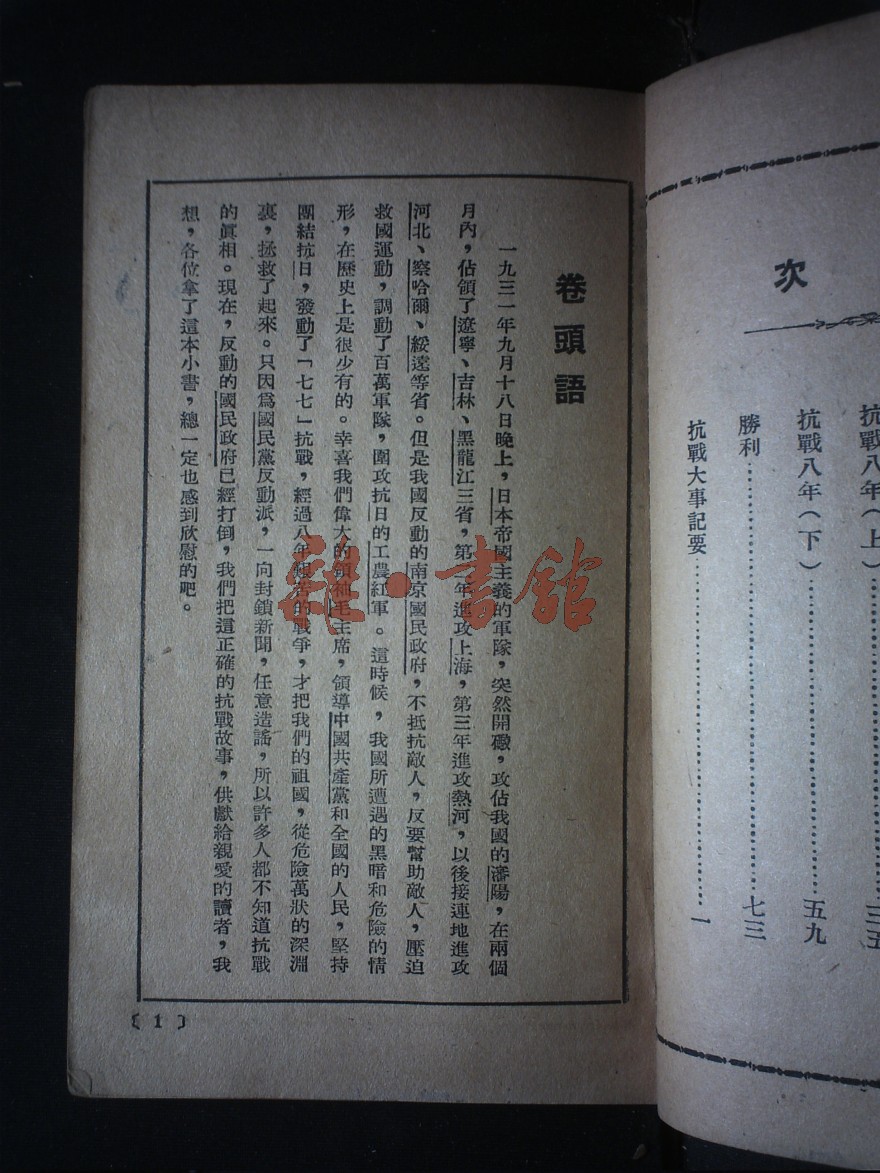 次
抗戰八年(上)……三五
抗戰八年(下)……五九
勝利……七三
抗戰大事記要……一
卷頭語
一九三一年九月十八日晚上,日本帝國主義的軍隊,突然開礮,攻佔我國的瀋陽,在兩個
月內,佔領了遼寧、吉林、黑龍江三省,第二年進攻上海,第三年進攻熱河,以後接連地進攻
河北、察哈爾、綏遠等省。但是我國反動的南京國民政府,不抵抗敵人,反要幫助敵人,壓迫
救國運動,調動了百萬軍隊,圍攻抗日的工農紅軍。這時候,我國所遭遇的黑暗和危險的情
形,在歷史上是很少有的。幸喜我們偉大的領袖毛主席,領導中國共產黨和全國的人民,堅持
團結抗日,發動了「七七」抗戰,經過八年艱苦的戰爭,才把我們的祖國,從危險萬狀的深淵
裏,拯救了起來。只因爲國民黨反動派,一向封鎖新聞,任意造謠,所以許多人都不知道抗戰
的眞相。現在,反動的國民政府已經打倒,我們把這正確的抗戰故事,供獻給親愛的讀者,我
想,各位拿了這本小書,總一定也感到欣慰的吧。
〔1〕
雜·書館